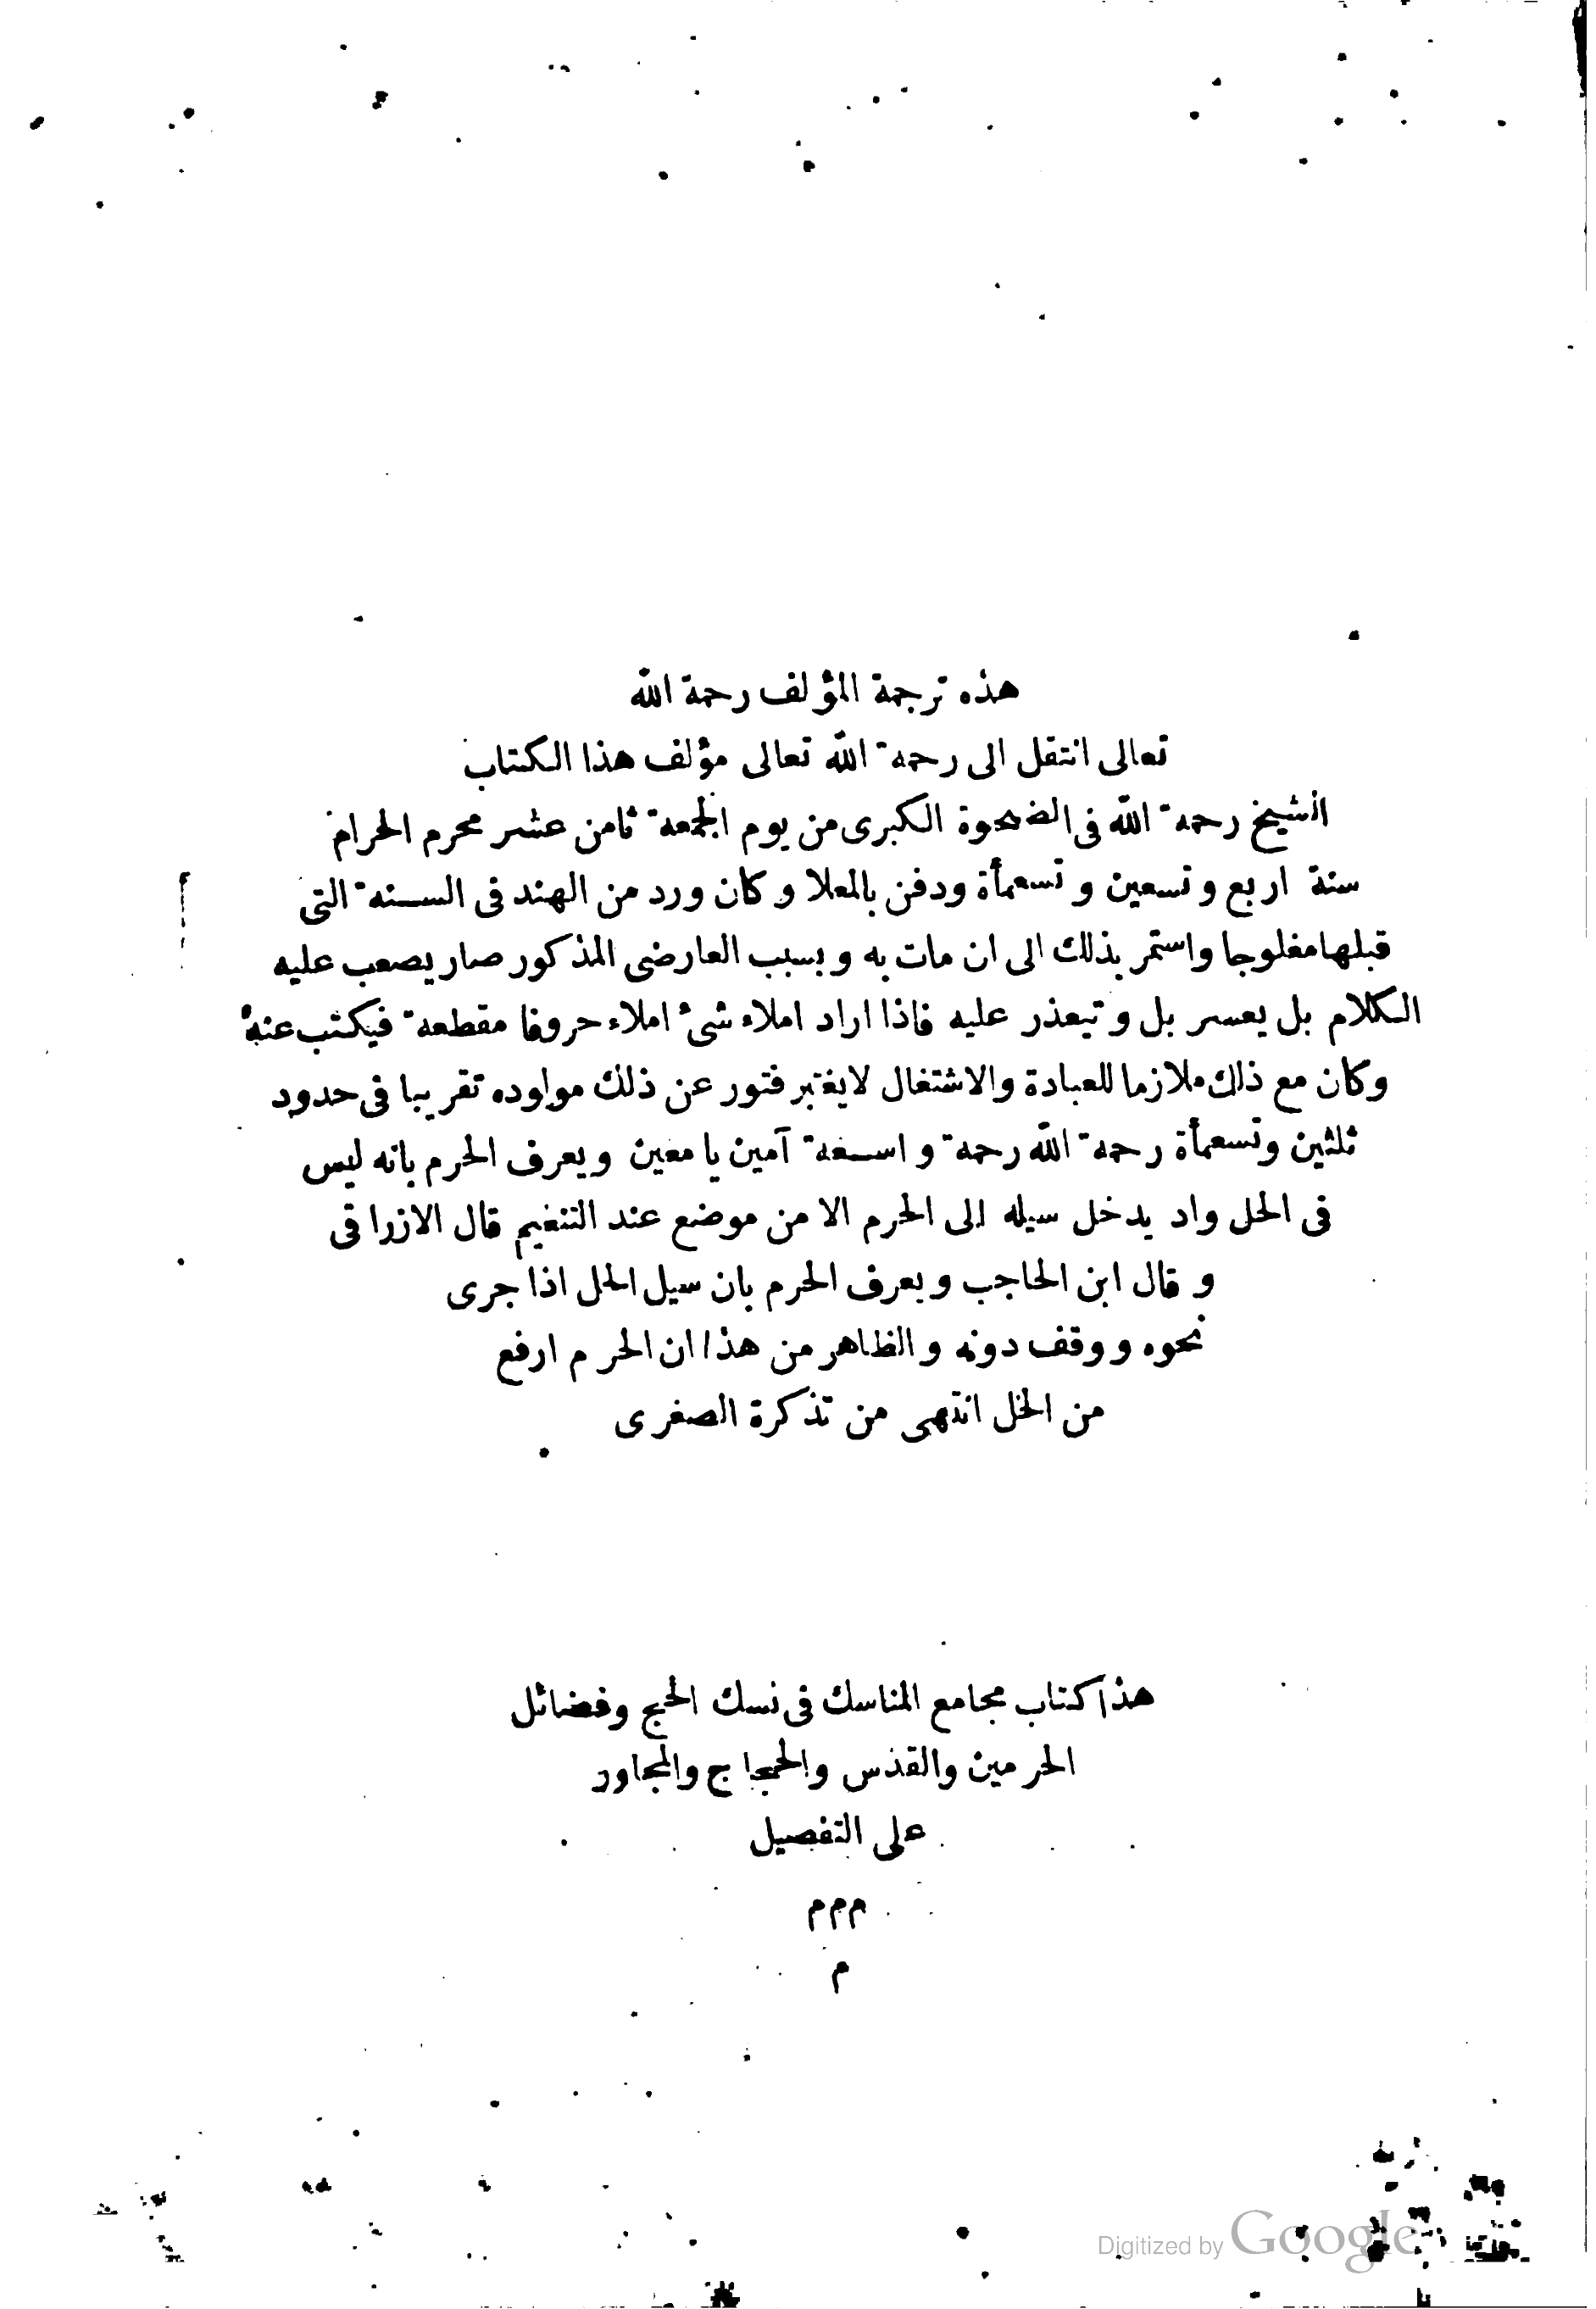 هذه ترجمة المؤلف رحمة الله
تعالى انتقل الى رحمة الله تعالى مؤلف هذا الكتاب
الشيخ رحمة الله فى الضحوة الكبرى من يوم الجمعة ثامن عشر محرم الحرام
سنة اربع و تسعين و تسعمأة ودفن بالمعلا و كان ورد من الهند فى السنة التى
قبلها مفلوجا واستمر بذلك الى ان مات به و بسبب العارضى المذكور صار يصعب عليه
الكلام بل يعسر بل و تيعذر عليه فاذا اراد املاء شئ املاء حروفا مقطعة فيكتب عنه
وكان مع ذلك ملازما للعبادة والاشتغال لايغتبر فتور عن ذلك مولوده تقريبا فى حدود
ثلثين وتسعمأة رحمة الله رحمة و اسغة آمين يا معين و يعرف الحرم بانه ليس
فى الحل واد يدخل سيله الى الحرم الا من موضع عند التنغيم قال الازراقى
و قال ابن الحاجب و يعرف الحرم بان سيل الحل اذا جرى
نحوه و وقف دونه و الظاهر من هذا ان الحرم ارفع
من الخل انتهى من تذكرة الصغرى
هذا كتاب مجامع المناسك فى نسك الحج وفضائل
الحرمين والقذس والحجاج والمجاور
على التفصيل
م م م
م
Digitized by Google